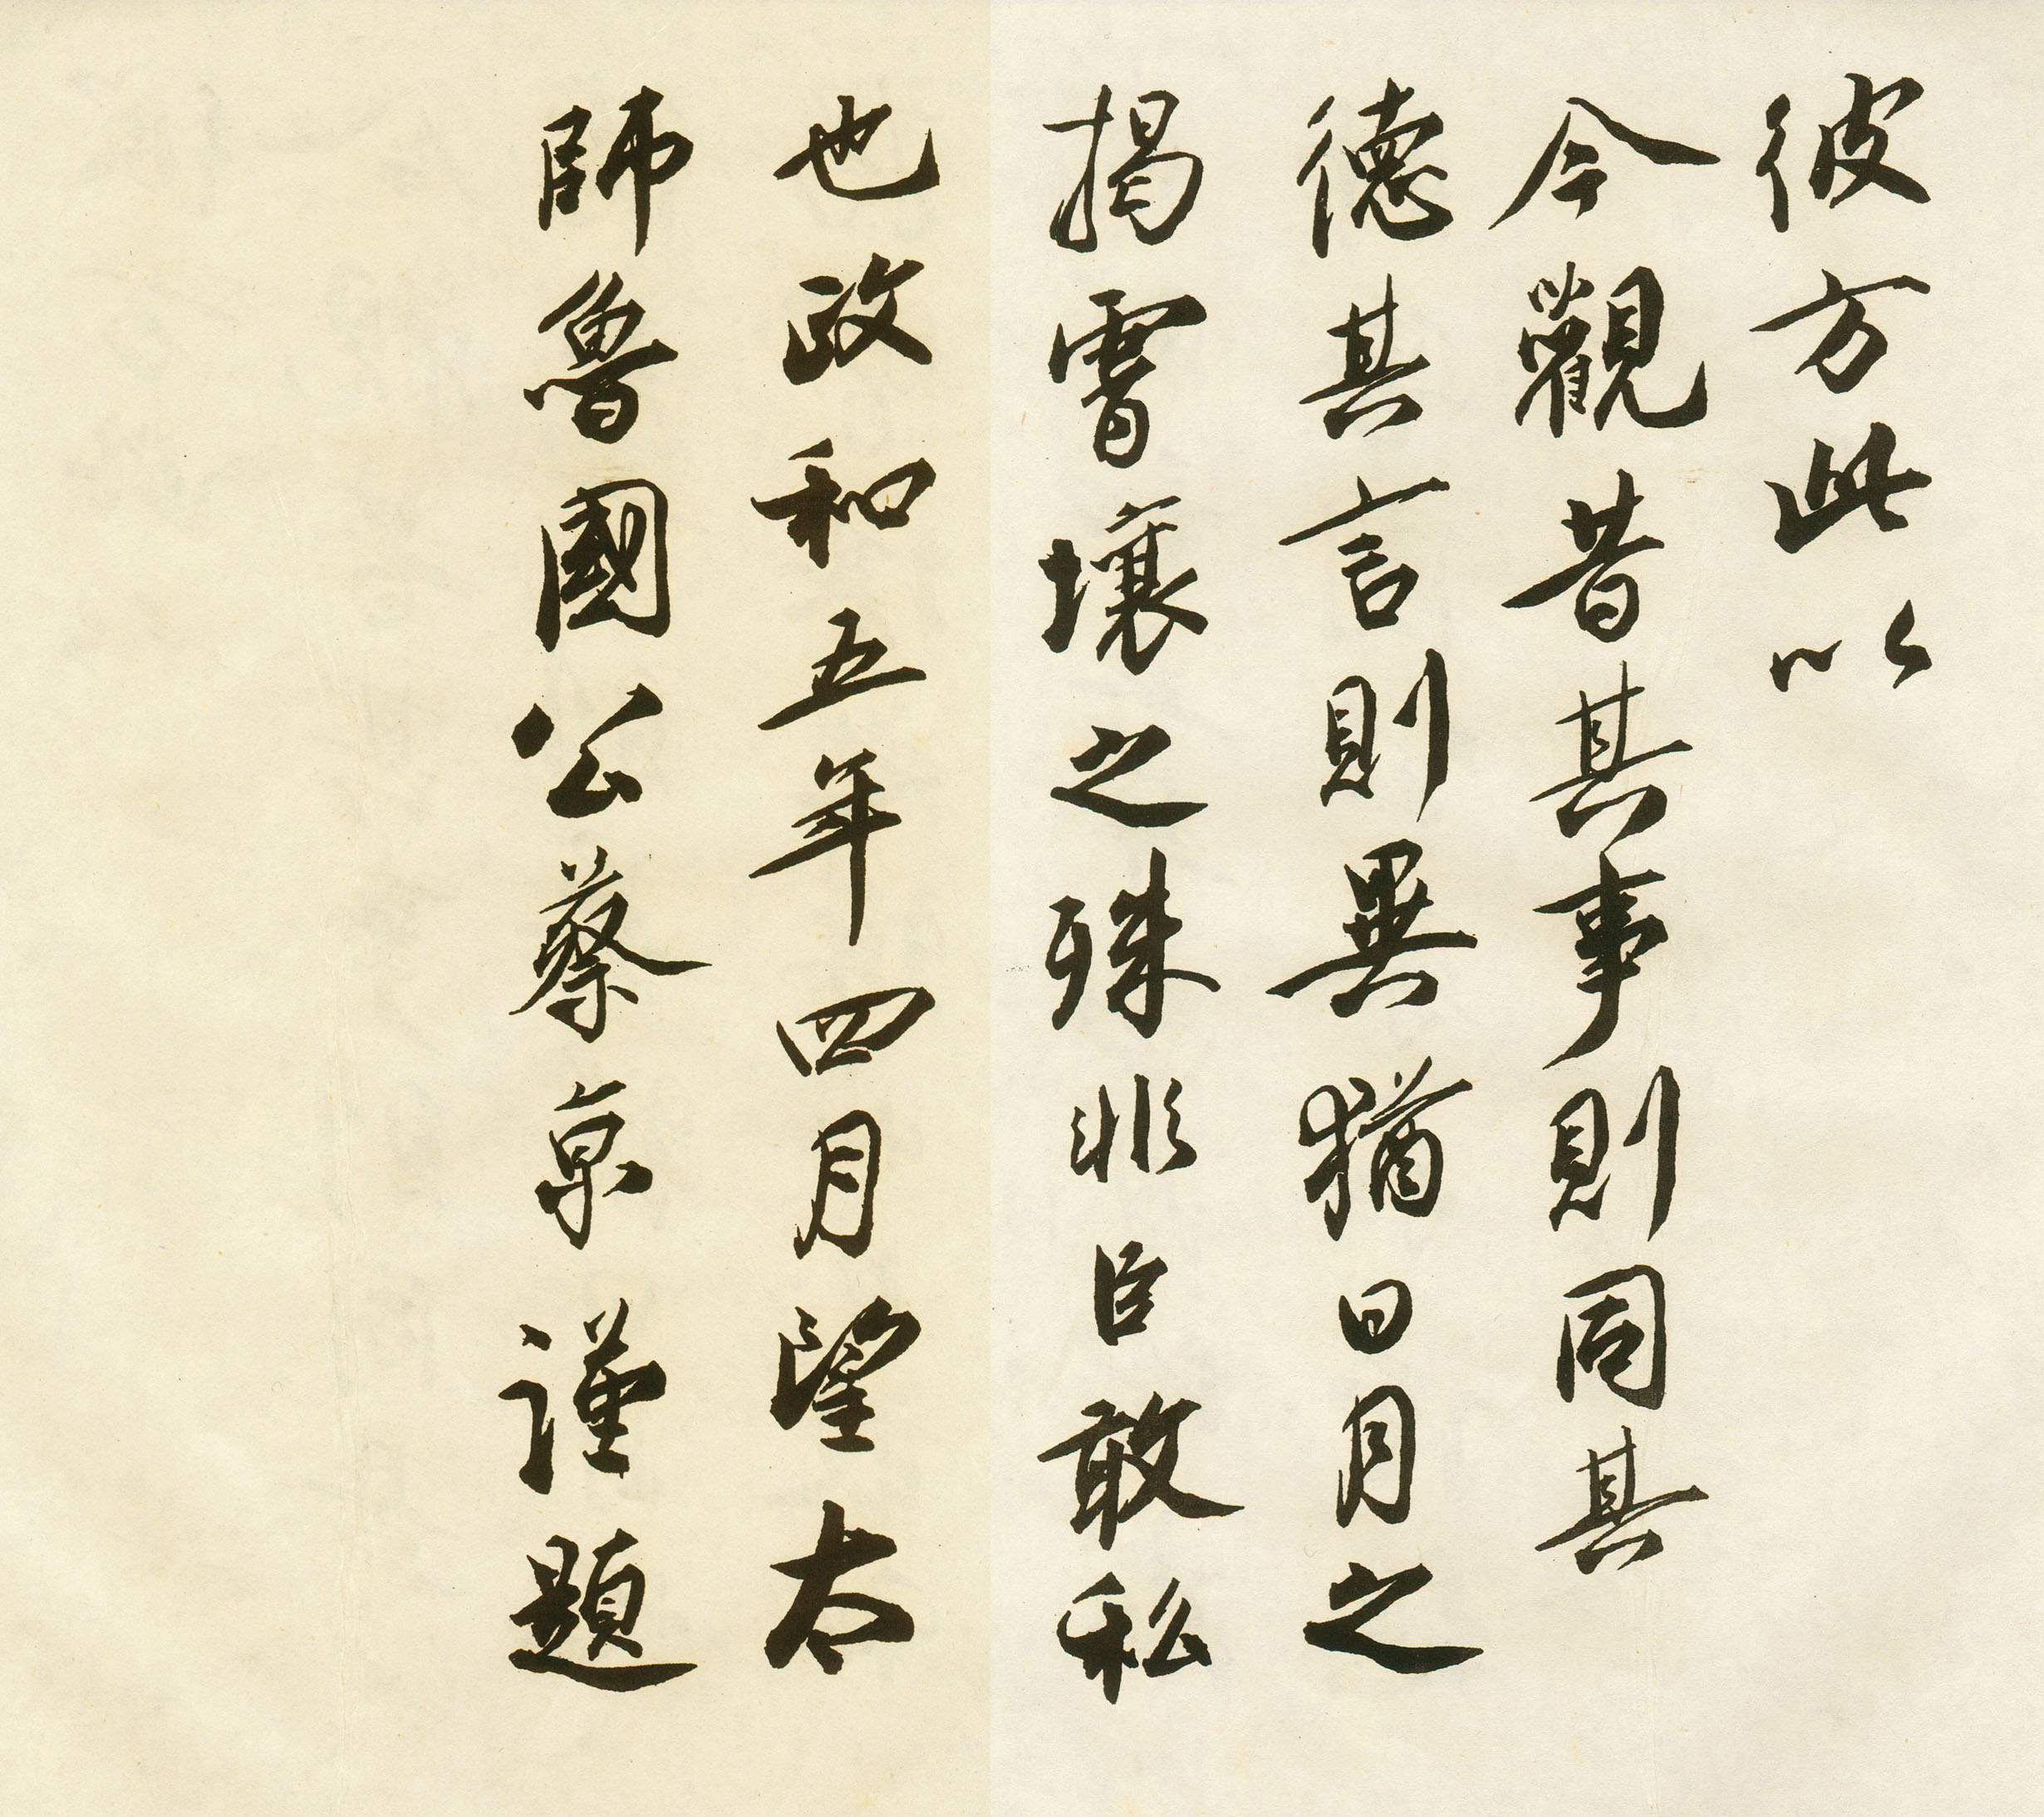 彼方此以
今觀昔其事則同其
德其言則異猶日月之
揭霄壤之殊非臣敢私
也政和五年四月望太
師魯國公蔡京謹題